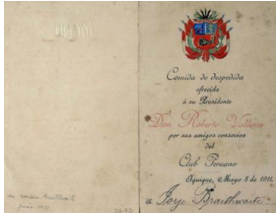 Comida de despedida
ofrecida
á su Presidente
Don Roberto
por sus amigos consocios
del
Club Peruano
Iquique, Mayo 8 de 1911.
a Jorge Braithwaite